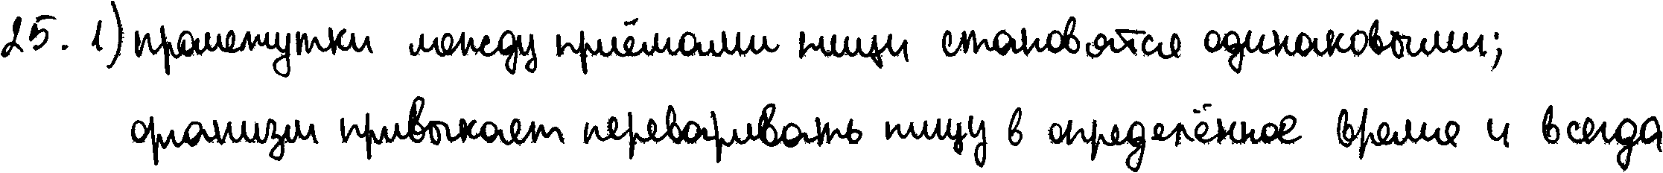 25. 1) промежутки между приёмами пищи становятся одинаковыми;
организм привыкает переваривать пищу в определённое время и всегда